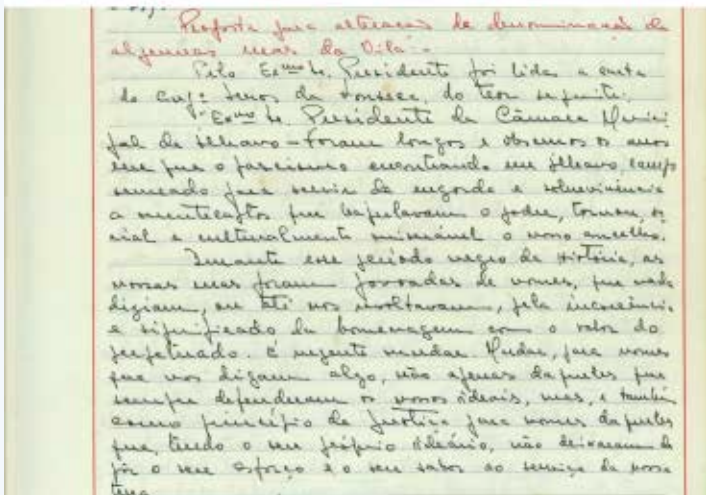 Proposta para alteração de denominação de
algumas ruas da Vila:-
Pelo Exmo Sr. Presidente foi lida a carta
do Engº Senos da Fonseca, do teor seguinte:
"Exmo Sr. Presidente da Câmara Munici
pal de Ílhavo - Foram longos e obscuros os anos
em que o fascismo encontrando em Ílhavo, campo
semeado para servir de engorda e sobrevivência
a mentecaptos que bajulavam o poder, tornou, so
cial e culturalmente miserável o nosso concelho.
Durante esse período negro da História, as
nossas ruas foram povoadas de nomes, que nada
diziam, ou até nos revoltavam, pela incoerência
e significado da homenagem com o valor do
perpetuado. É urgente mudar. Mudar, para nomes
que nos digam algo, não apenas daqueles que
sempre defenderam os nossos ideais, mas, e também
como princípio de Justiça para nomes daqueles
que, tendo o seu próprio ideário, não deixaram de
pôr o seu esforço e o seu saber ao serviço da nossa
terra